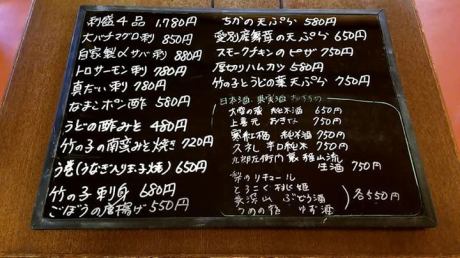 刺盛4品 1,780円
大バチマグロ刺 850円
自家製〆サバ刺 880円
トロサーモン刺 780円
真だい刺 780円
なまこポン酢 580円
うどの酢みそ 480円
竹の子の南蛮みそ焼き 720円
う巻(うなぎ入り玉子焼) 650円
竹の子刺身 680円
ごぼうの唐揚げ 550円
ちかの天ぷら 580円
愛別産舞茸の天ぷら 650円
スモークチキンのピザ 750円
厚切りハムカツ 580円
竹の子とうどの葉天ぷら 750円
日本酒、果実酒
純米酒 650円
上喜元 750円
寒紅梅 純米酒 750円
久礼 辛口純米 750円
九郎左衛門 裏雅山流
生酒 750円
梨のリキュール
ぶどう酒
うめの宿 ゆず酒
各550円